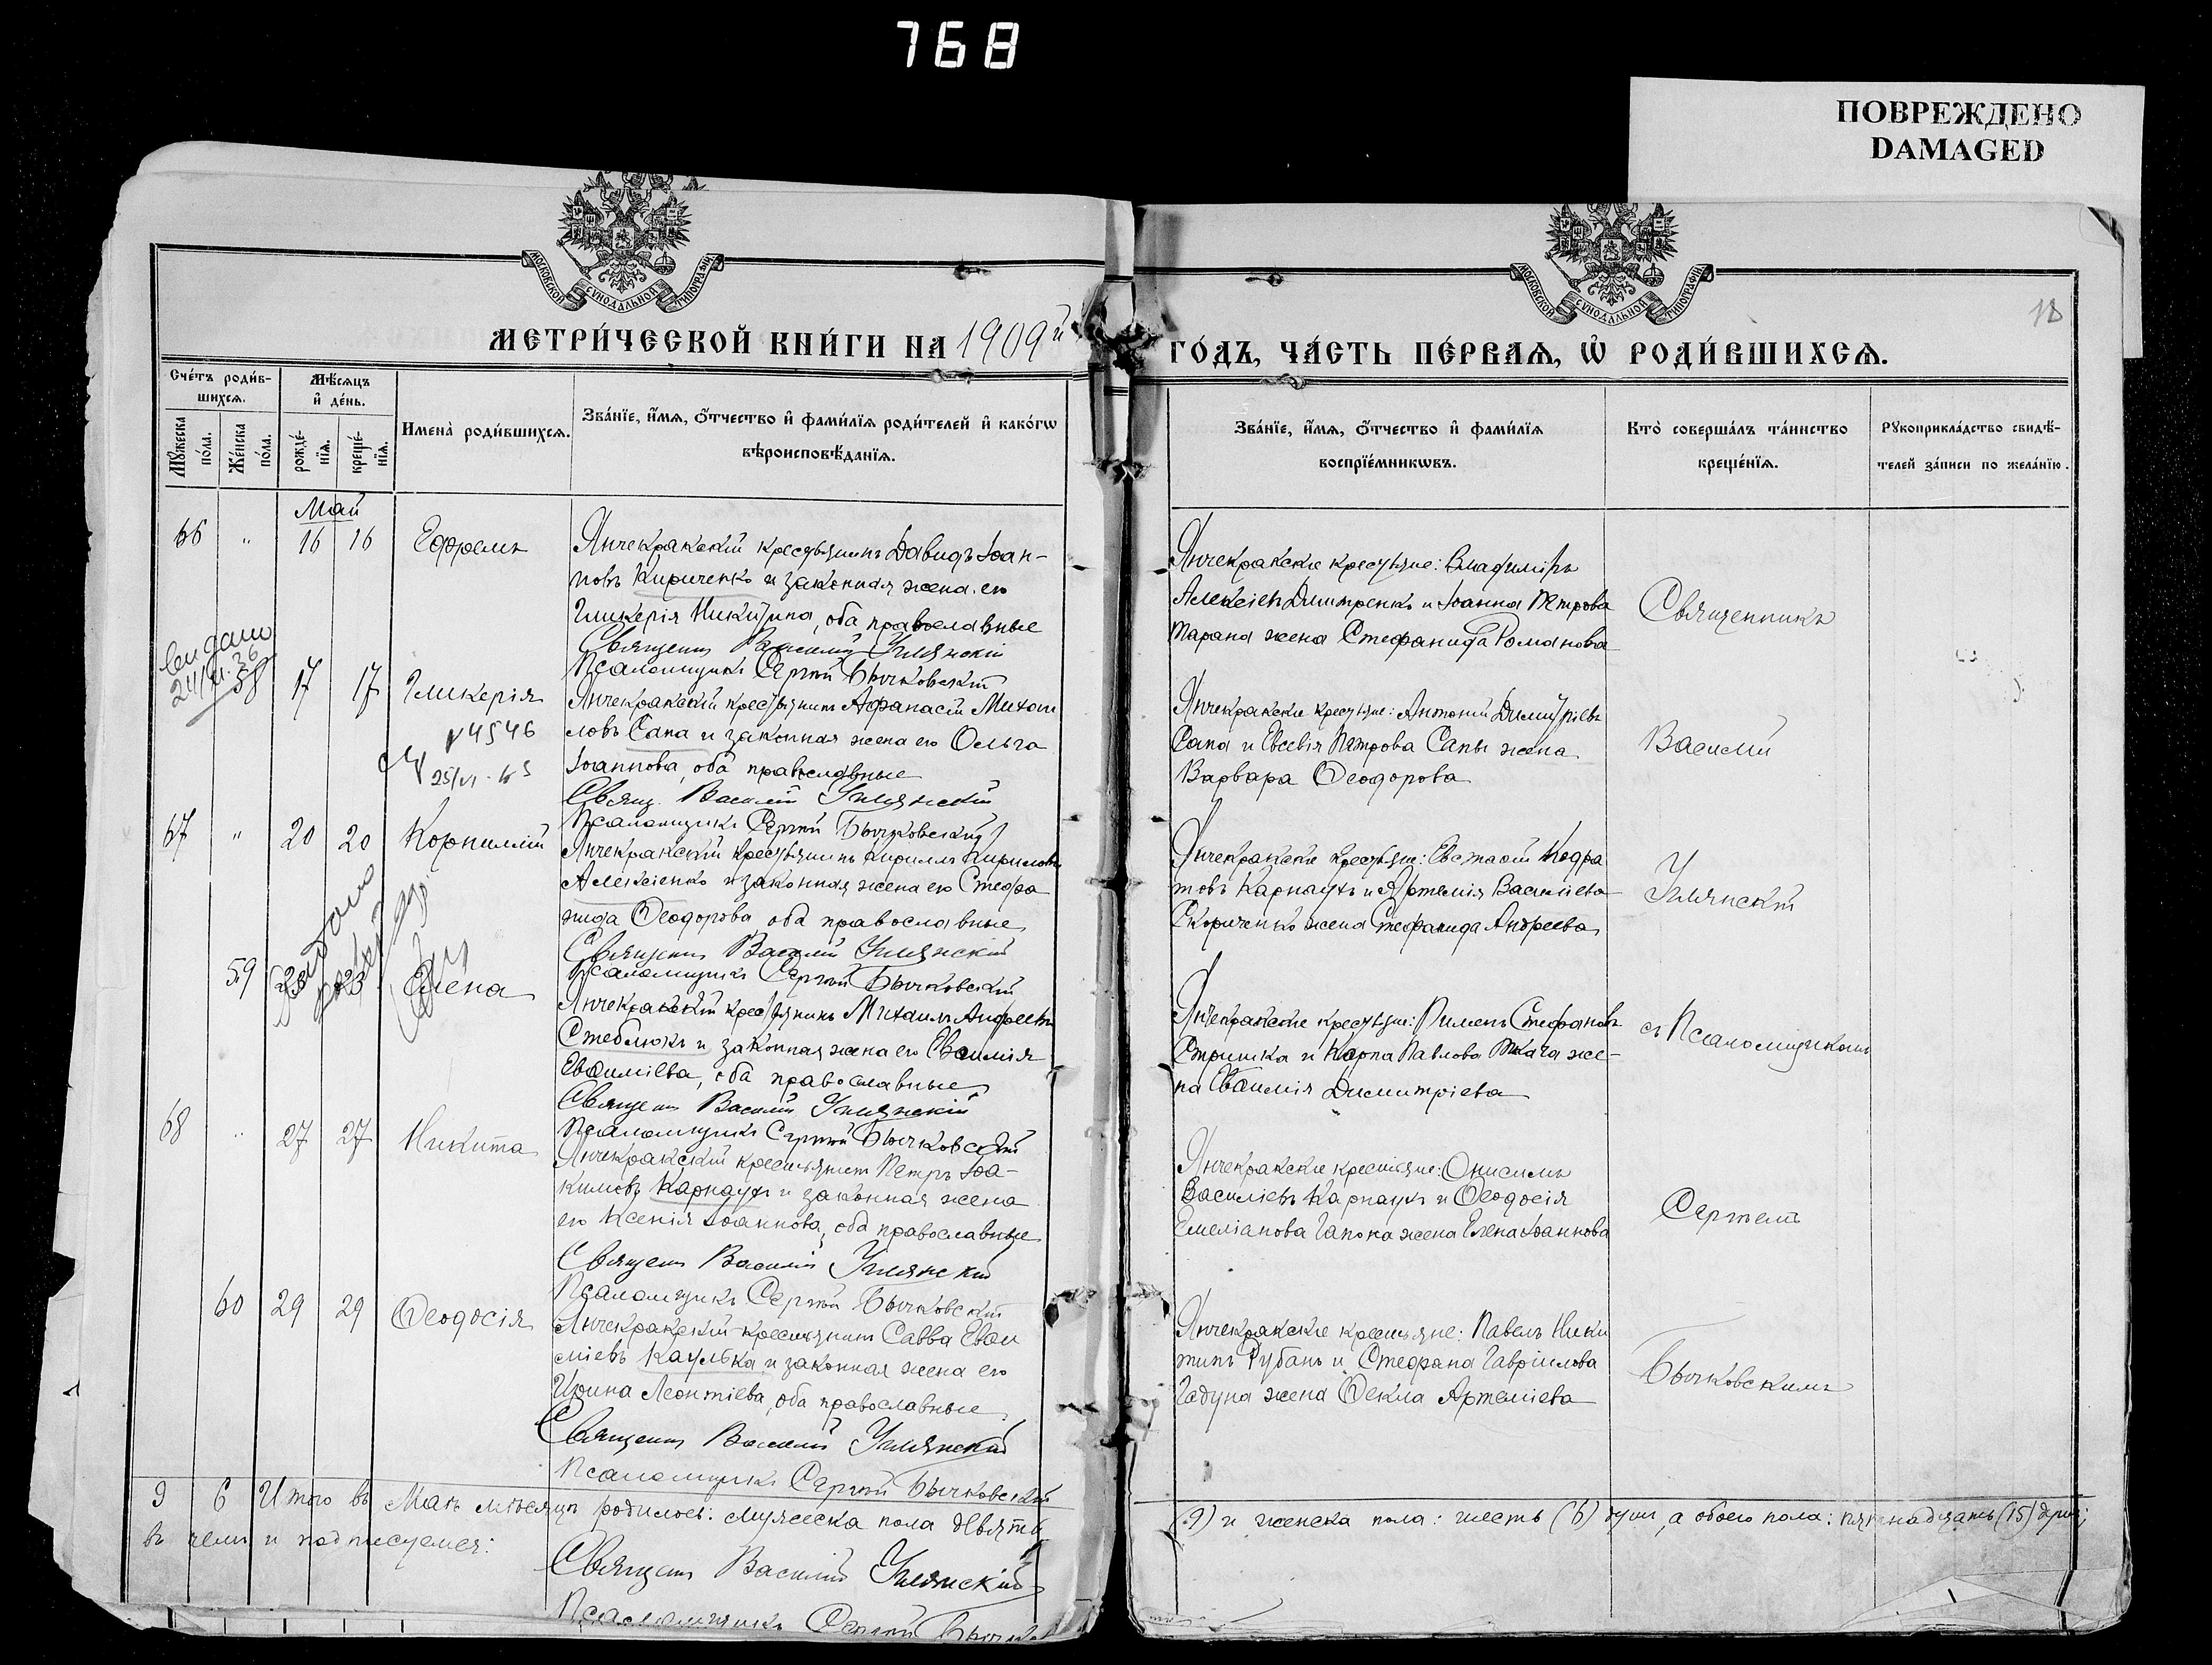 768
ПОВРЕЖДЕНО
DAMAGED
МОСКОВСКОЙ СѴНОДАЛЬНОЙ ТИПОГРАФІИ
МОСКОВСКОЙ СѴНОДАЛЬНОЙ ТИПОГРАФІИ
18
МЕТРИ́ЧЕСКОЙ КНИ́ГИ НА 1909й
ГО́ДЪ, ЧА́СТЬ ПЕ́РВАЯ, Ѡ҆ РОДИ́ВШИХСЯ.
Сче́тъ роди́в-
шихся.
Мѣ́сяцъ
и҆ де́нь.
Мꙋ́жеска по́ла.
Же́нска по́ла.
рожде́-
нїя.
креще́-
нїя.
Имена̀ роди́вшихся.
Зва́нїе, и҆́мя, ѻ҆́тчество и҆ фами́лїя роди́телей и҆ како́гѡ
вѣроисповѣ́данїя.
Зва́нїе, и҆́мя, ѻ҆́тчество и҆ фами́лїя
воспрїе́мникѡвъ.
Кто̀ соверша́лъ та́инство
креще́нїя.
Рꙋкоприкла́дство свидѣ́-
телей за́писи по жела́нїю.
Май
66 " 16 16 Ефремъ
Янчекракскій крестьянинъ Давидъ Іоан-
новъ Кириченко и законная жена его
Гликерія Никитина, оба православные
Священ. Василій Уклянскій
Псаломщикъ Сергій Бычковскій
Янчекракские крестьяне: Владиміръ
Алексіевъ Димтренко и Іоанна Петрова
Тарана жена Стефанида Романова
Священникъ
58 17 17 Гликерія
№4546
Янчекракскій крестьянинъ Афанасій Михаи
ловъ Сапа и законная жена его Ольга
Іоаннова, оба православные
Свящ. Василій Уклянскій
Псаломщикъ Сергій Бычковскій
Янчекракские крестьяне: Антоній Димитріевъ
Сапа и Евсевія Петрова Сапы жена
Варвара Ѳеодорова
Василій
67 " 20 20 Корнилій
Янчекракскій крестьянинъ Кириллъ Кириловъ
Алексіенко и законная жена его Стефа
нида Ѳеодорова оба православные
Священ. Василій Уклянскій
Псаломщикъ Сергій Бычковскій
Янчекракские крестьяне: Евстафій Кодра
товъ Карнаухъ и Артемія Василіева
Скориченко жена Стефанида Андреева
Уклянскій
59 23 23 Елена
Янчекракскій крестьянинъ Михаилъ Андреевъ
Стеблюкъ и законная жена его Евѳимія
Евѳиміева, оба православные
Священ. Василій Уклянскій
Псаломщикъ Сергій Бычковскій
Янчекракские крестьяне: Пименъ Стефановъ
Стришка и Карпа Павлова Ткача же-
на Евѳимія Димитріева
съ Псаломщикомъ
68 " 27 27 Никита
Янчекракскій крестьянинъ Петръ Іоа-
кимовъ Карнаухъ и законная жена
его Ксенія Іоаннова, оба православные
Священ. Василій Уклянскій
Псаломщикъ Сергій Бычковскій
Янчекракские крестьяне: Онисимъ
Василіевъ Карнаухъ и Ѳеодосія
Емеліанова Гапона жена Елена Іоаннова
Сергіемъ
60 29 29 Ѳеодосія
Янчекракскій крестьянинъ Савва Евѳи
міевъ Каулька и законная жена его
Ирина Леонтіева, оба православные
Священ. Василій Уклянскій
Псаломщикъ Сергій Бычковскій
Янчекракские крестьяне: Павелъ Ники
тинъ Рубанъ и Стефана Гавріилова
Гадуна жена Ѳекла Артеміева
Бычковскимъ
9 6 Итого въ Маѣ мѣсяцѣ родилось: мужеска пола девять
(9) и женска пола: шесть (6) душъ, а обоего пола: пятнадцать (15) душъ;
въ чемъ и подписуемся:
Священ. Василій Уклянскій
Псаломщикъ Сергій